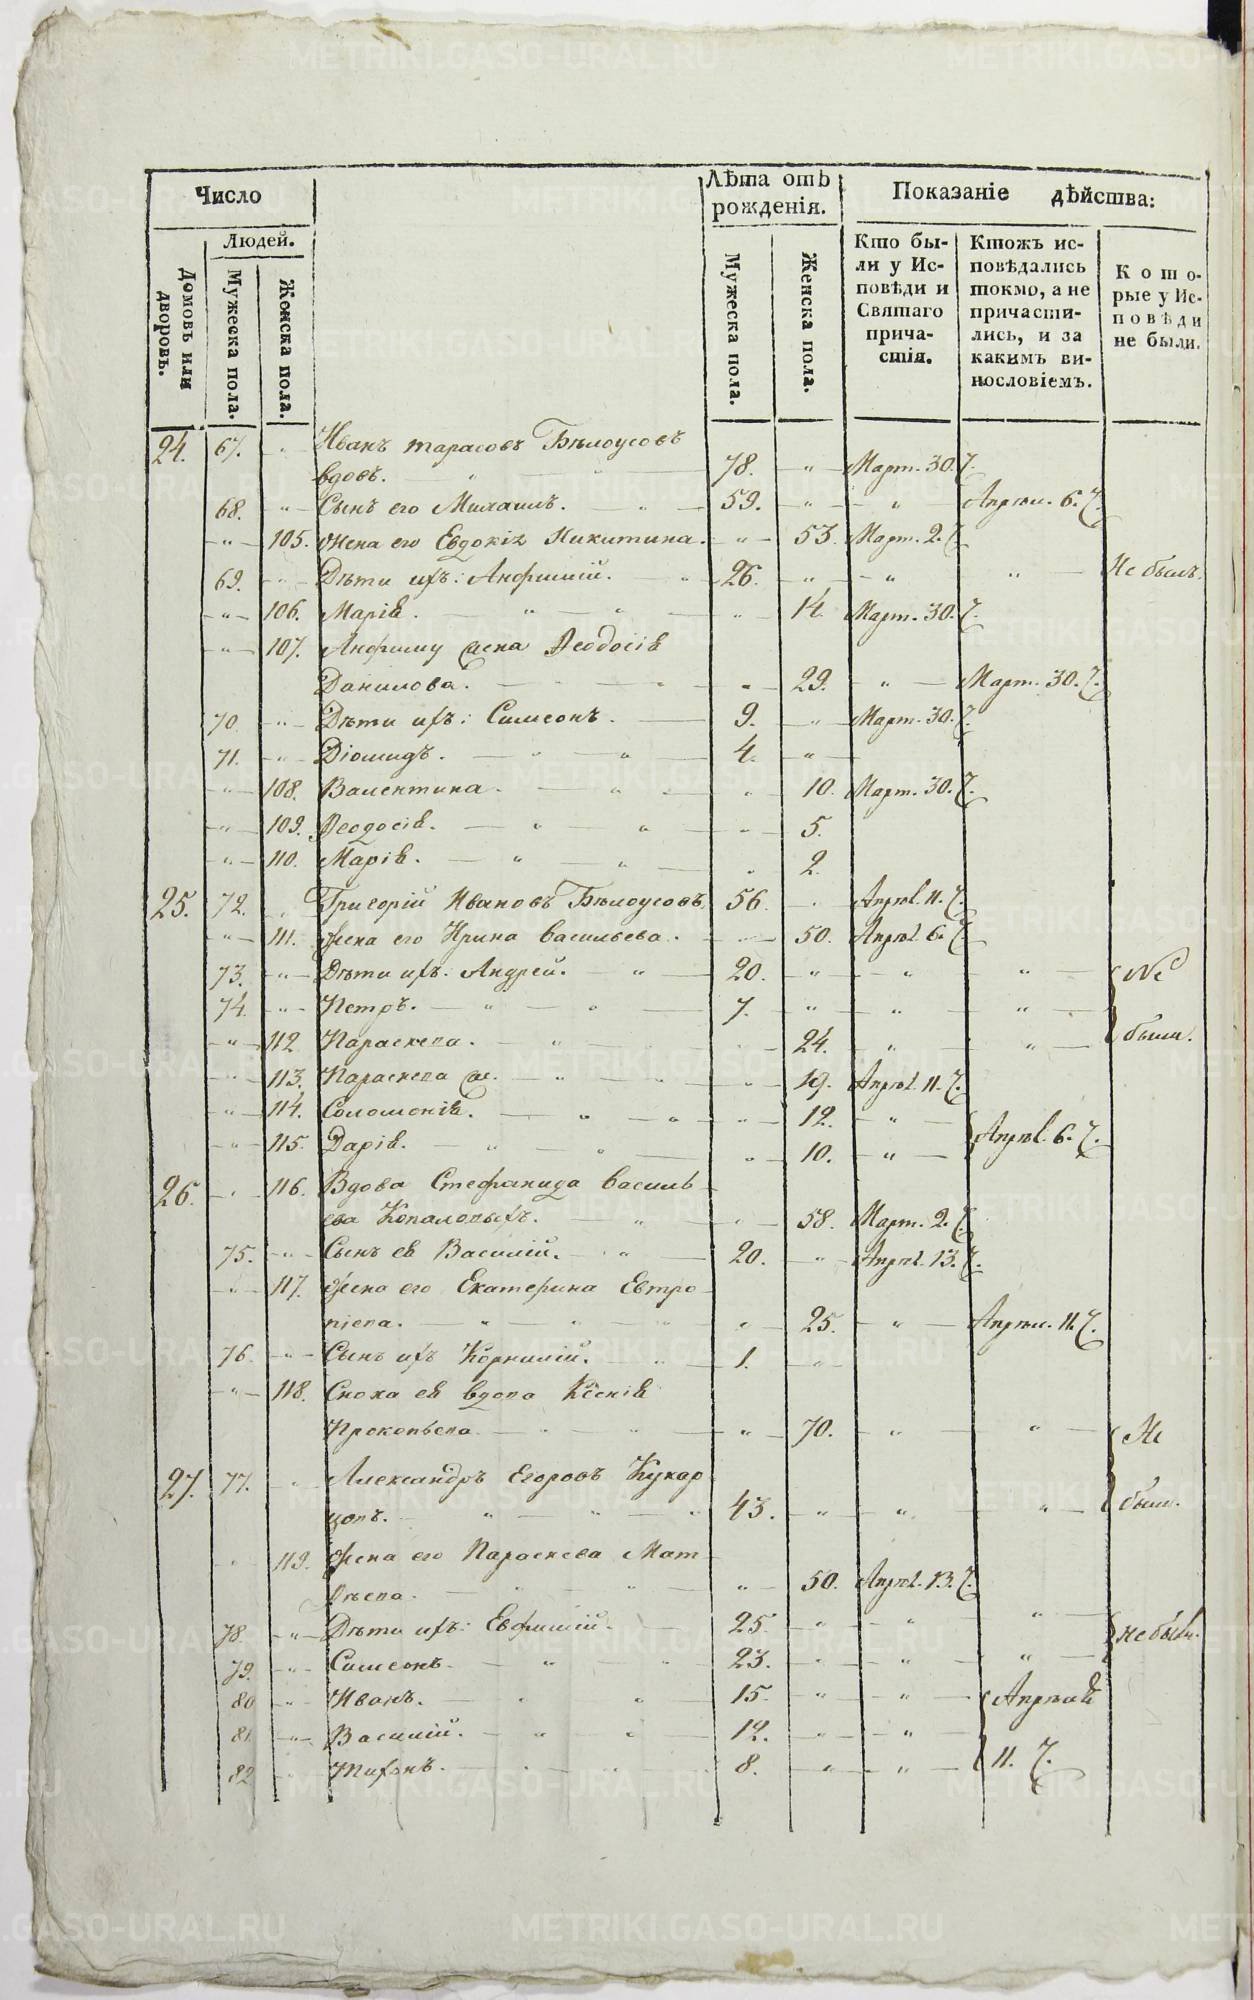 Число
Людей.
Домовъ или дворовъ.
Мужеска пола.
Женска пола.
Лѣта отъ рожденія.
Мужеска пола.
Женска пола.
Показаніе дѣйства:
Кто бы-
ли у Ис-
повѣди и
Святаго
прича-
стія.
Ктожъ ис-
повѣдались
токмо, а не
причасти-
лись, и за
какимъ ви-
нословіемъ.
Кото-
рые у Ис-
повѣди
не были.
24. 67. Иванъ Тарасовъ Бѣлоусовъ
вдовъ. 78. Март. 30. Ч.
68. Сынъ его Михаилъ. 59. Апрѣл. 6. Ч.
105. Жена его Евдокія Никитина. 53. Март. 2. Ч.
69. Дѣти ихъ: Анфимій. 26. Не былъ.
106. Марія. 14. Март. 30. Ч.
107. Анфиму жена Ѳеодосія
Данилова. 29. Март. 30. Ч.
70. Дѣти ихъ: Симеонъ. 9. Март. 30. Ч.
71. Діомидъ. 4.
108. Валентина. 10. Март. 30. Ч.
109. Ѳеодосія. 5.
110. Марія. 2.
25. 72. Григорій Ивановъ Бѣлоусовъ. 56. Апрѣл. 11. Ч.
111. Жена его Ирина Васильева. 50. Апрѣл. 6. Ч.
73. Дѣти ихъ: Андрей. 20. Не
74. Петръ. 7.
112. Параскева. 24. были.
113. Параскева ж. 19. Апрѣл. 11. Ч.
114. Соломонія. 12. Апрѣл. 6. Ч.
115. Дарія. 10.
26. 116. Вдова Стефанида Василь
ева Копаловыхъ. 58. Март. 2. Ч.
75. Сынъ ея Василій. 20. Апрѣл. 13. Ч.
117. Жена его Екатерина Евтро
піева. 25. Апрѣл. 11. Ч.
76. Сынъ ихъ Корнилій. 1.
118. Сноха ея вдова Ксенія
Прокопьева. 70. Не
27. 77. Александръ Егоровъ Кукар
цовъ. 43. были.
119. Жена его Параскева Мат
ѳѣева. 50. Апрѣл. 13. Ч.
78. Дѣти ихъ: Евфимій. 25. не были.
79. Симеонъ. 23.
80 Иванъ. 15. Апрѣля
81. Василій. 12.
82 Тихонъ. 8. 11. Ч.
METRIKI.GASO-URAL.RU